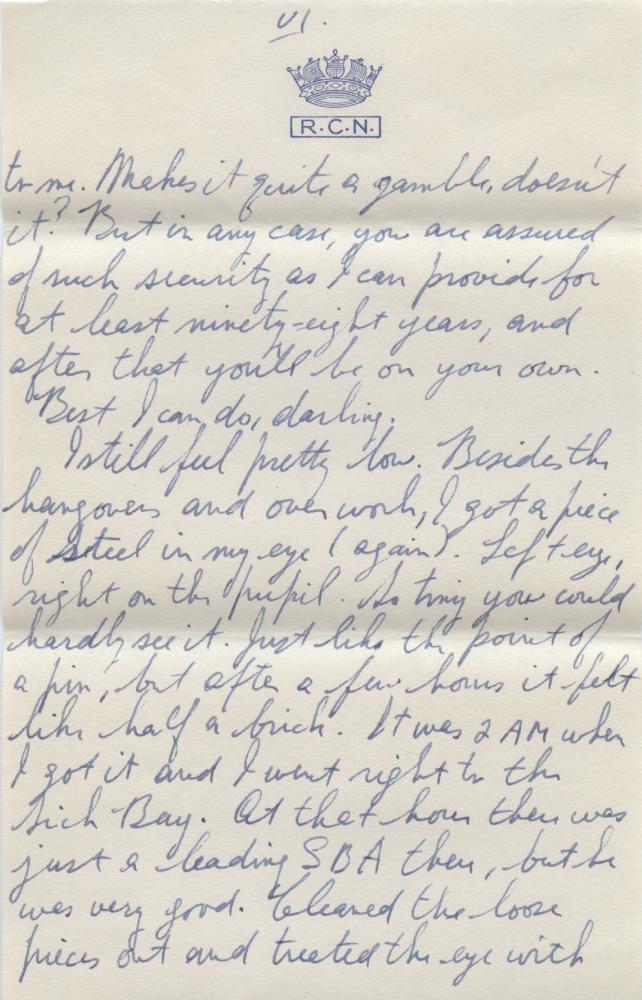 VI.
R.C.N.
to me. Makes it quite a gamble, doesn't
it? But in any case, you are assured
of such security as I can provide for
at least ninety-eight years, and
after that you'll be on your own.
Best I can do, darling.
I still feel pretty low. Besides the
hangovers and over work, I got a piece
of steel in my eye (again). Left eye,
right on the pupil. So tiny you could
hardly see it. Just like the point of
a pin, but after a few hours it felt
like half a brick. It was 2 AM when
I got it and I went right to the
Sick Bay. At that hour there was
just a leading SBA there, but he
was very good. Cleaned the loose
pieces out and treated the eye with